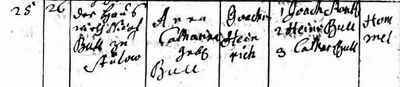 25 26 der Haus
wirth
Bull zu
Sülow
Anna
Catharina
geb.
Bull
Joachim
Hein
rich
1 Joach
2 Heinr Bull
3 Cathar Bull
Hom
mel